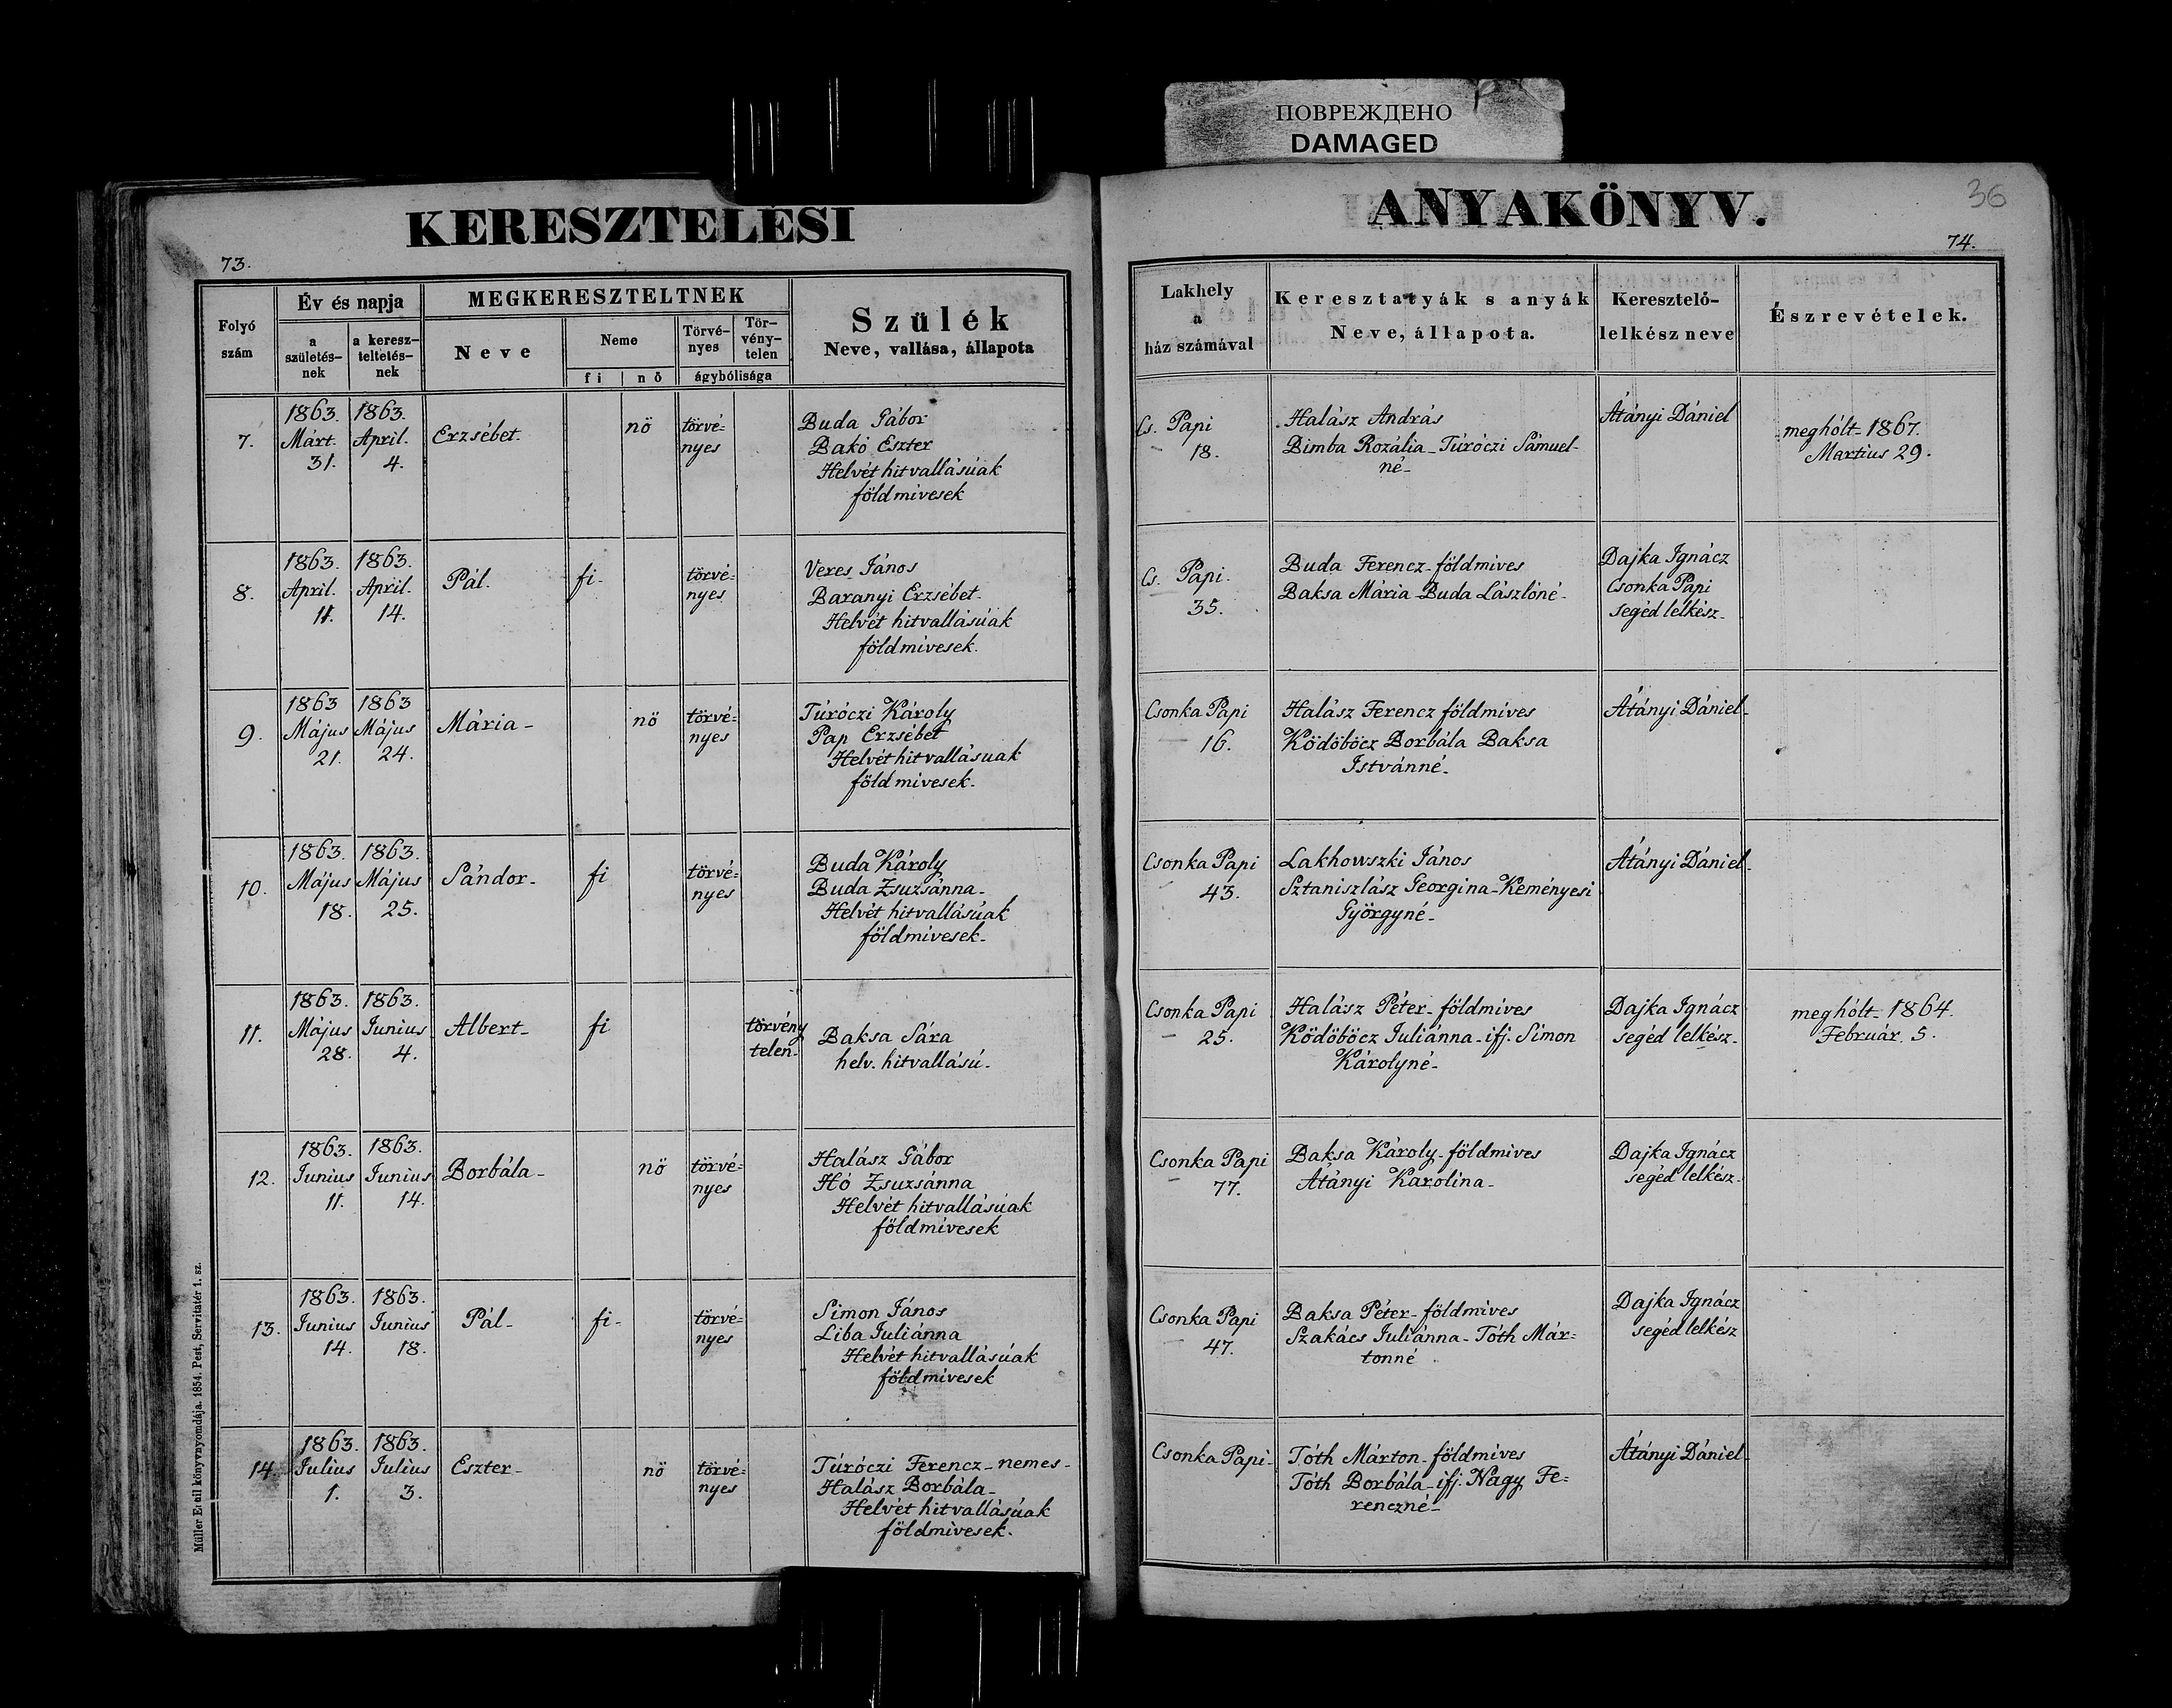 ПОВРЕЖДЕНО
DAMAGED
KERESZTELÉSI
73.
Folyó szám
Év és napja
a születés-nek
a keresz-teltetés-nek
MEGKERESZTELTNEK
Neve
Neme
fi
nő
Törvé-nyes
Tör-vény-telen
ágybólisága
Szülék
Neve, vallása, állapota
ANYAKÖNYV.
36
74.
Lakhely
a
ház számával
Keresztatyák s anyák
Neve, állapota.
Keresztelő-
lelkész neve
Észrevételek.
7.
1863.
Márt.
31.
1863.
April.
4.
Erzsébet.
nö
törvé=
nyes
Buda Gábor
Bakó Eszter
Helvét hitvallásúak
földmivesek
Cs. Papi
18.
Halász András
Bimba Rozália - Túróczi Sámuel-
né-
Átányi Dániel
meghólt - 1867.
Martius 29.
8.
1863.
April.
11.
1863.
April.
14.
Pál.
fi-
törvé=
nyes
Veres János
Baranyi Erzsébet-
Helvét hitvallásúak
földmivesek.
Cs. Papi.
35.
Buda Ferencz - földmíves
Baksa Mária - Buda Lászlóné-
Dajka Ignácz
Csonka Papi
segéd lelkész-
9.
1863
Május
21.
1863
Május
24.
Mária-
nö
törvé=
nyes
Túróczi Károly
Pap Erzsébet
Helvét hitvallásuak
földmivesek.
Csonka Papi
16.
Halász Ferencz földmíves
Ködöböcz Borbála Baksa
Istvánné-
Átányi Dániel-
10.
1863.
Május
18.
1863.
Május
25.
Sándor-
fi
törvé=
nyes
Buda Károly
Buda Zsuzsánna-
Helvét hitvallásúak
földmivesek-
Csonka Papi
43.
Lakhowszki János
Sztaniszlász Georgina - Keményesi
Györgyné-
Átányi Dániel-
11.
1863.
Május
28.
1863.
Junius
4.
Albert-
fi
törvény
telen-
Baksa Sára
helv. hitvallású-
Csonka Papi
25.
Halász Péter - földmíves
Ködöböcz Juliánna - ifj. Simon
Károlyné-
Dajka Ignácz
segéd lelkész-
meghólt - 1864.
Február. 5.
12.
1863.
Junius
11.
1863.
Junius
14.
Borbála-
nö
törvé=
nyes
Halász Gábor
Hó Zsuzsánna
Helvét hitvallásúak
földmívesek
Csonka Papi
77.
Baksa Károly - földmives
Átányi Karolina-
Dajka Ignácz
segéd lelkész-
13.
1863.
Junius
14.
1863.
Junius
18.
Pál-
fi-
törvé=
nyes
Simon János
Liba Juliánna
Helvét hitvallásúak
földmivesek
Csonka Papi
47.
Baksa Péter - földmíves
Szakács Juliánna - Tóth Már=
tonné
Dajka Ignácz
segéd lelkész
14.
1863.
Julius
1.
1863.
Julius
3.
Eszter-
nö
törvé=
nyes
Túróczi Ferencz - nemes-
Halász Borbála-
Helvét hitvallásúak
földmivesek.
Csonka Papi-
Tóth Márton - földmíves
Tóth Borbála - ifj. Nagy Fe=
renczné-
Átányi Dániel-
könyvnyomdája. 1854. Pest, Servitatér 1. sz.